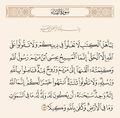 سورة النساء
يَا أَهْلَ الْكِتَابِ لَا تَغْلُوا فِي دِينِكُمْ وَلَا تَقُولُوا عَلَى
اللَّهِ إِلَّا الْحَقَّ إِنَّمَا الْمَسِيحُ عِيسَى ابْنُ مَرْيَمَ رَسُولُ اللَّهِ
وَكَلِمَتُهُ أَلْقَاهَا إِلَى مَرْيَمَ وَرُوحٌ مِنْهُ فَآمِنُوا بِاللَّهِ
وَرُسُلِهِ وَلَا تَقُولُوا ثَلَاثَةٌ انْتَهُوا خَيْرًا لَكُمْ إِنَّمَا اللَّهُ
إِلَهٌ وَاحِدٌ سُبْحَانَهُ أَنْ يَكُونَ لَهُ وَلَدٌ لَهُ مَا فِي السَّمَاوَاتِ
وَمَا فِي الْأَرْضِ وَكَفَى بِاللَّهِ وَكِيلًا